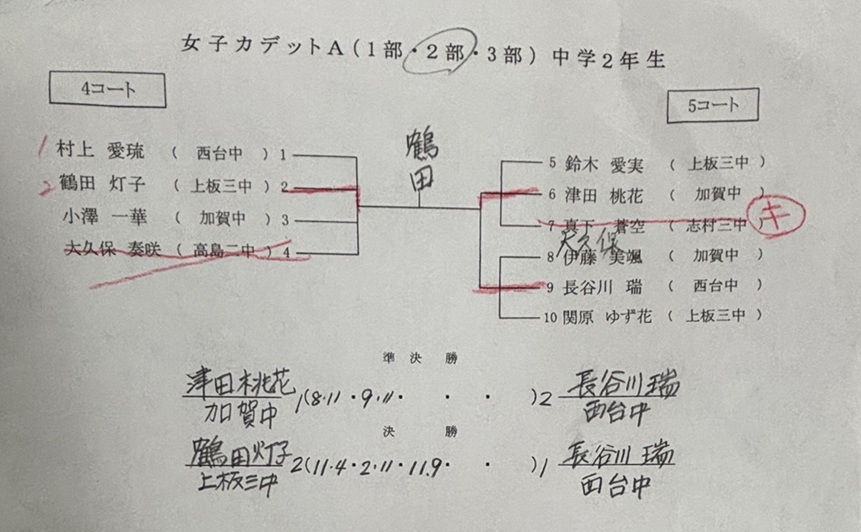 女子カデットA(1部・2部・3部)中学2年生
4コート
5コート
鶴田
1 村上 愛琉 ( 西台中 ) 1
2 鶴田 灯子 ( 上板三中 ) 2
小澤 一華 ( 加賀中 ) 3
大久保 奏咲 ( 高島二中 ) 4
5 鈴木 愛実 ( 上板三中 )
6 津田 桃花 ( 加賀中 )
7 真下 蒼空 ( 志村三中 ) キ
大久保
8 伊藤 美颯 ( 加賀中 )
9 長谷川 瑞 ( 西台中 )
10 関原 ゆず花 ( 上板三中 )
準決勝
津田桃花 1(8・11・9・11・ ・ ・ )2 長谷川瑞
加賀中 西台中
決勝
鶴田灯子 2(11・4・2・11・11.9・ ・ )1 長谷川瑞
上板三中 西台中